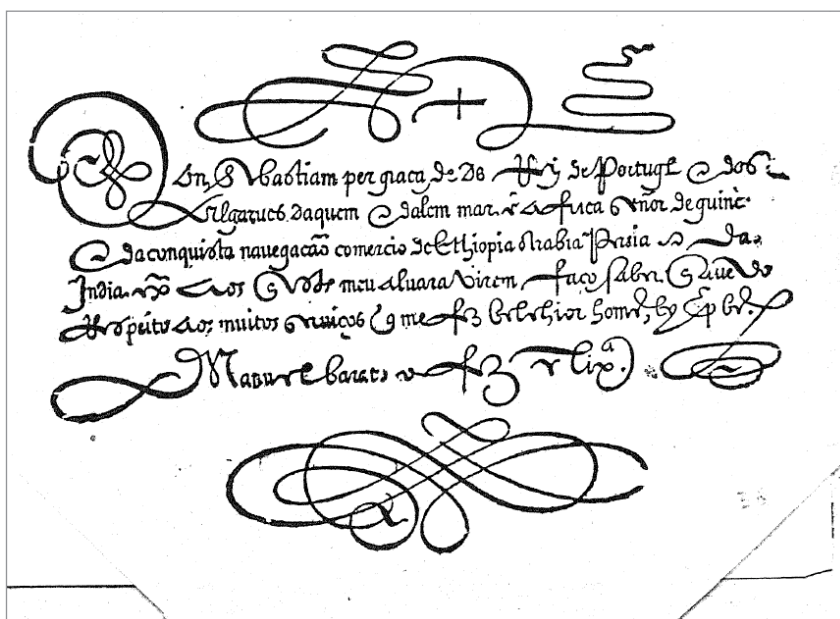 Dom Sebastiam per graça de Ds Rey de Portugl e dos
Algarues daquem e dalem mar ẽ Africa señor de guinè
e da conquista nauegacão comercio de Ethiopia Arabia Persia e da
India. faço saber
Respeito aos muitos seruiços q̃ me fez belchior
Manuel barato o fez ẽ lixª.